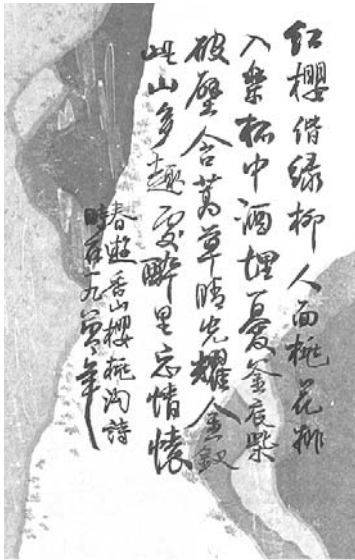 红櫻偕绿柳人面桃花排
入樂杯中酒埋憂釜底柴
破壁含芳草晴光耀金釵
此山多趣處醉里忘情懷
春遊香山櫻桃沟詩
時在一九年